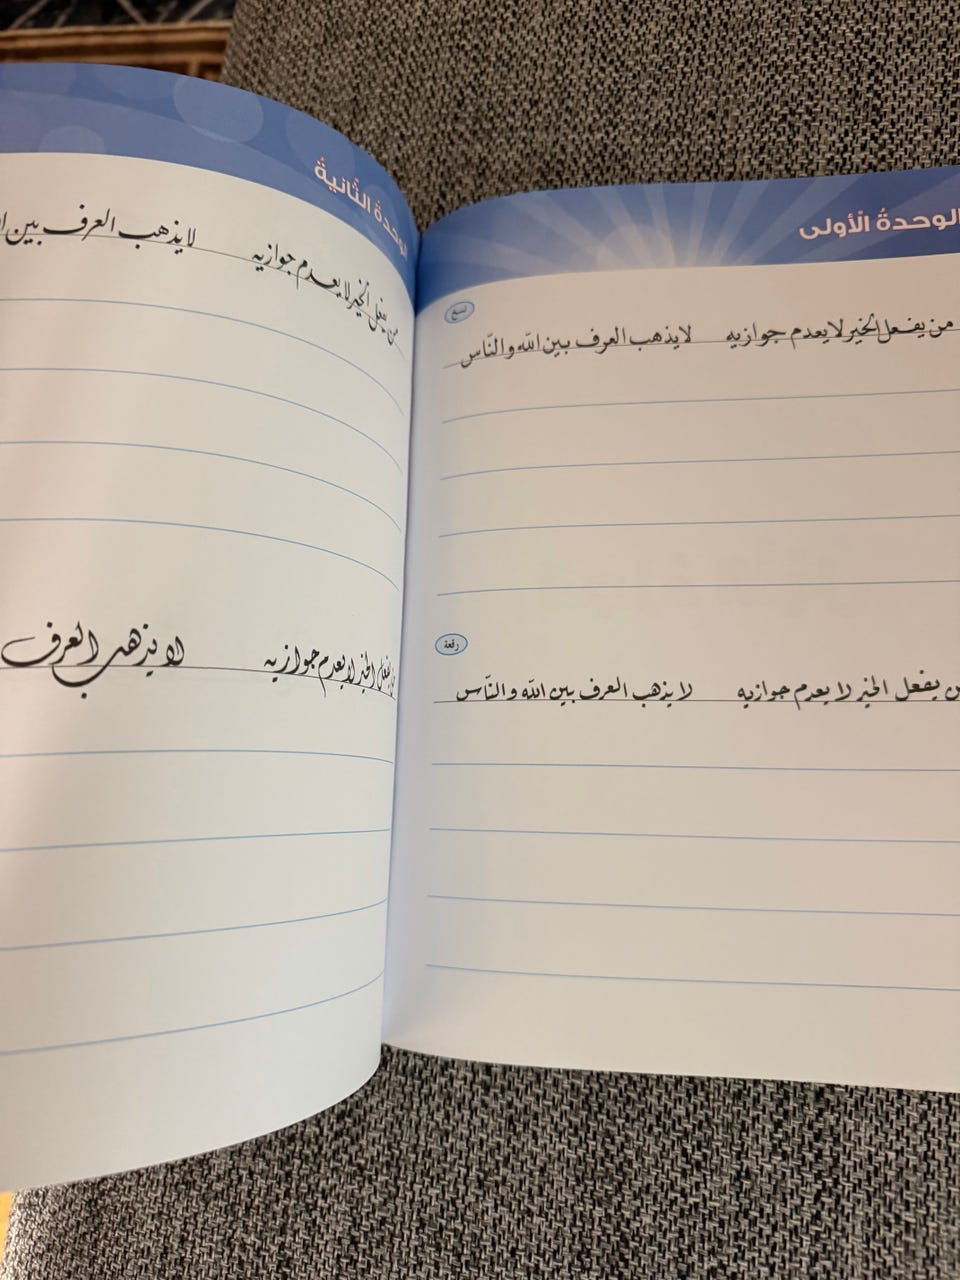 الوحدةُ الْأولى
نسخ
من يفعل الخير لا يعدم جوازيه لا يذهب العرف بين الله والنّاس
رقعة
من يفعل الخير لا يعدم جوازيه لا يذهب العرف بين الله والنّاس
الوحدةُ الثّانيةُ
من يفعل الخير لا يعدم جوازيه لا يذهب العرف بين
من يفعل الخير لا يعدم جوازيه لا يذهب العرف